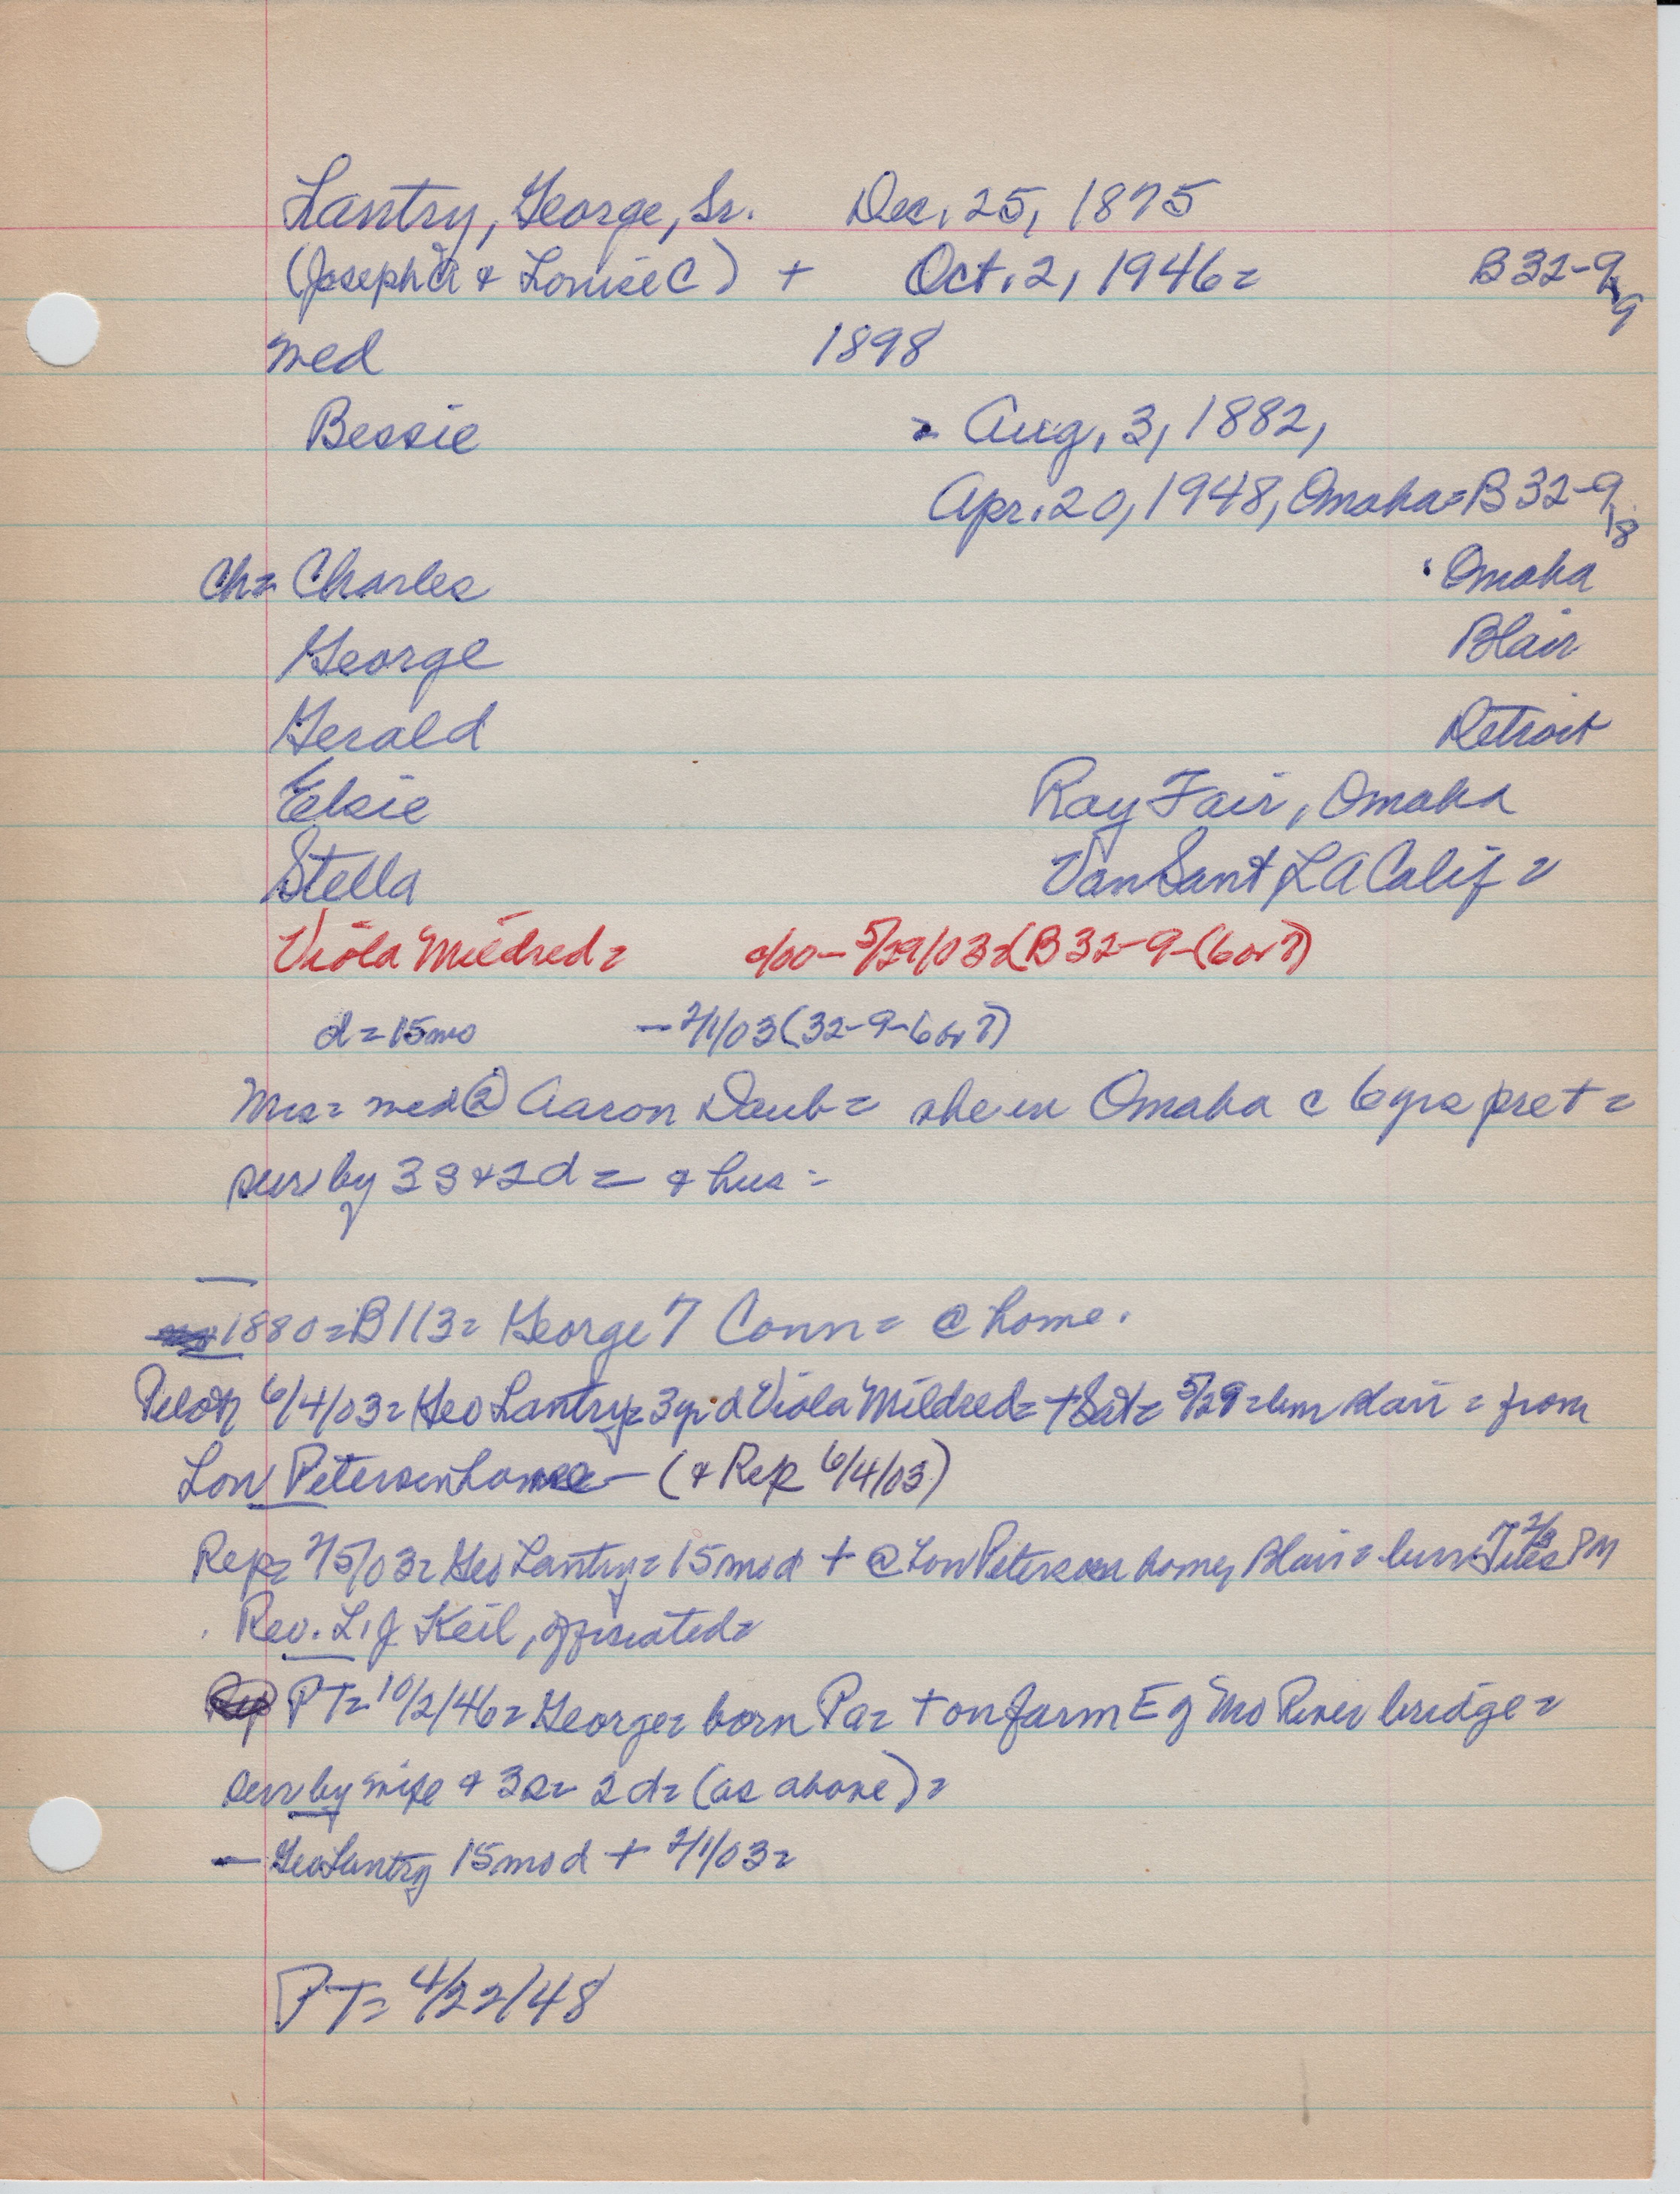 Lantry, George, Sr. Dec. 25, 1875
(Joseph A & Louise C) + Oct. 2, 1946= B32-9-9
med 1898
Bessie = Aug. 3, 1882,
Apr. 20, 1948, Omaha=B32-9-18
Ch= Charles Omaha
George Blair
Gerald Detroit
Elsie Ray Fair, Omaha
Stella Van Sant LA Calif=
Viola Mildred= c/00-5/29/03=(B32-9-(6 or 7)
d=15mo -2/1/03(32-9-6 or 7)
Mrs= med② Aaron Daub= she in Omaha c 6 yrs pre+=
surv by 3s+2d= & hus=
1880=B113= George 7 Conn= @ home.
Pilot 6/4/03= Geo Lantry= 3 yr d Viola Mildred= + Sat= 5/29= bur Blair= from
Lon Petersen home- (& Rep 6/4/03)
Rep= 2/5/03= Geo Lantry= 15 mo d + @ Lon Petersen home, Blair= bur Tues 2/3 PM
Rev. L. J. Keil, officiated=
Rep PT= 10/2/46= George= born Pa= + on farm E of Mo River bridge=
surv by wife & 3s= 2d= (as above)=
- Geo Lantry 15 mo d + 2/1/03=
PT= 4/22/48